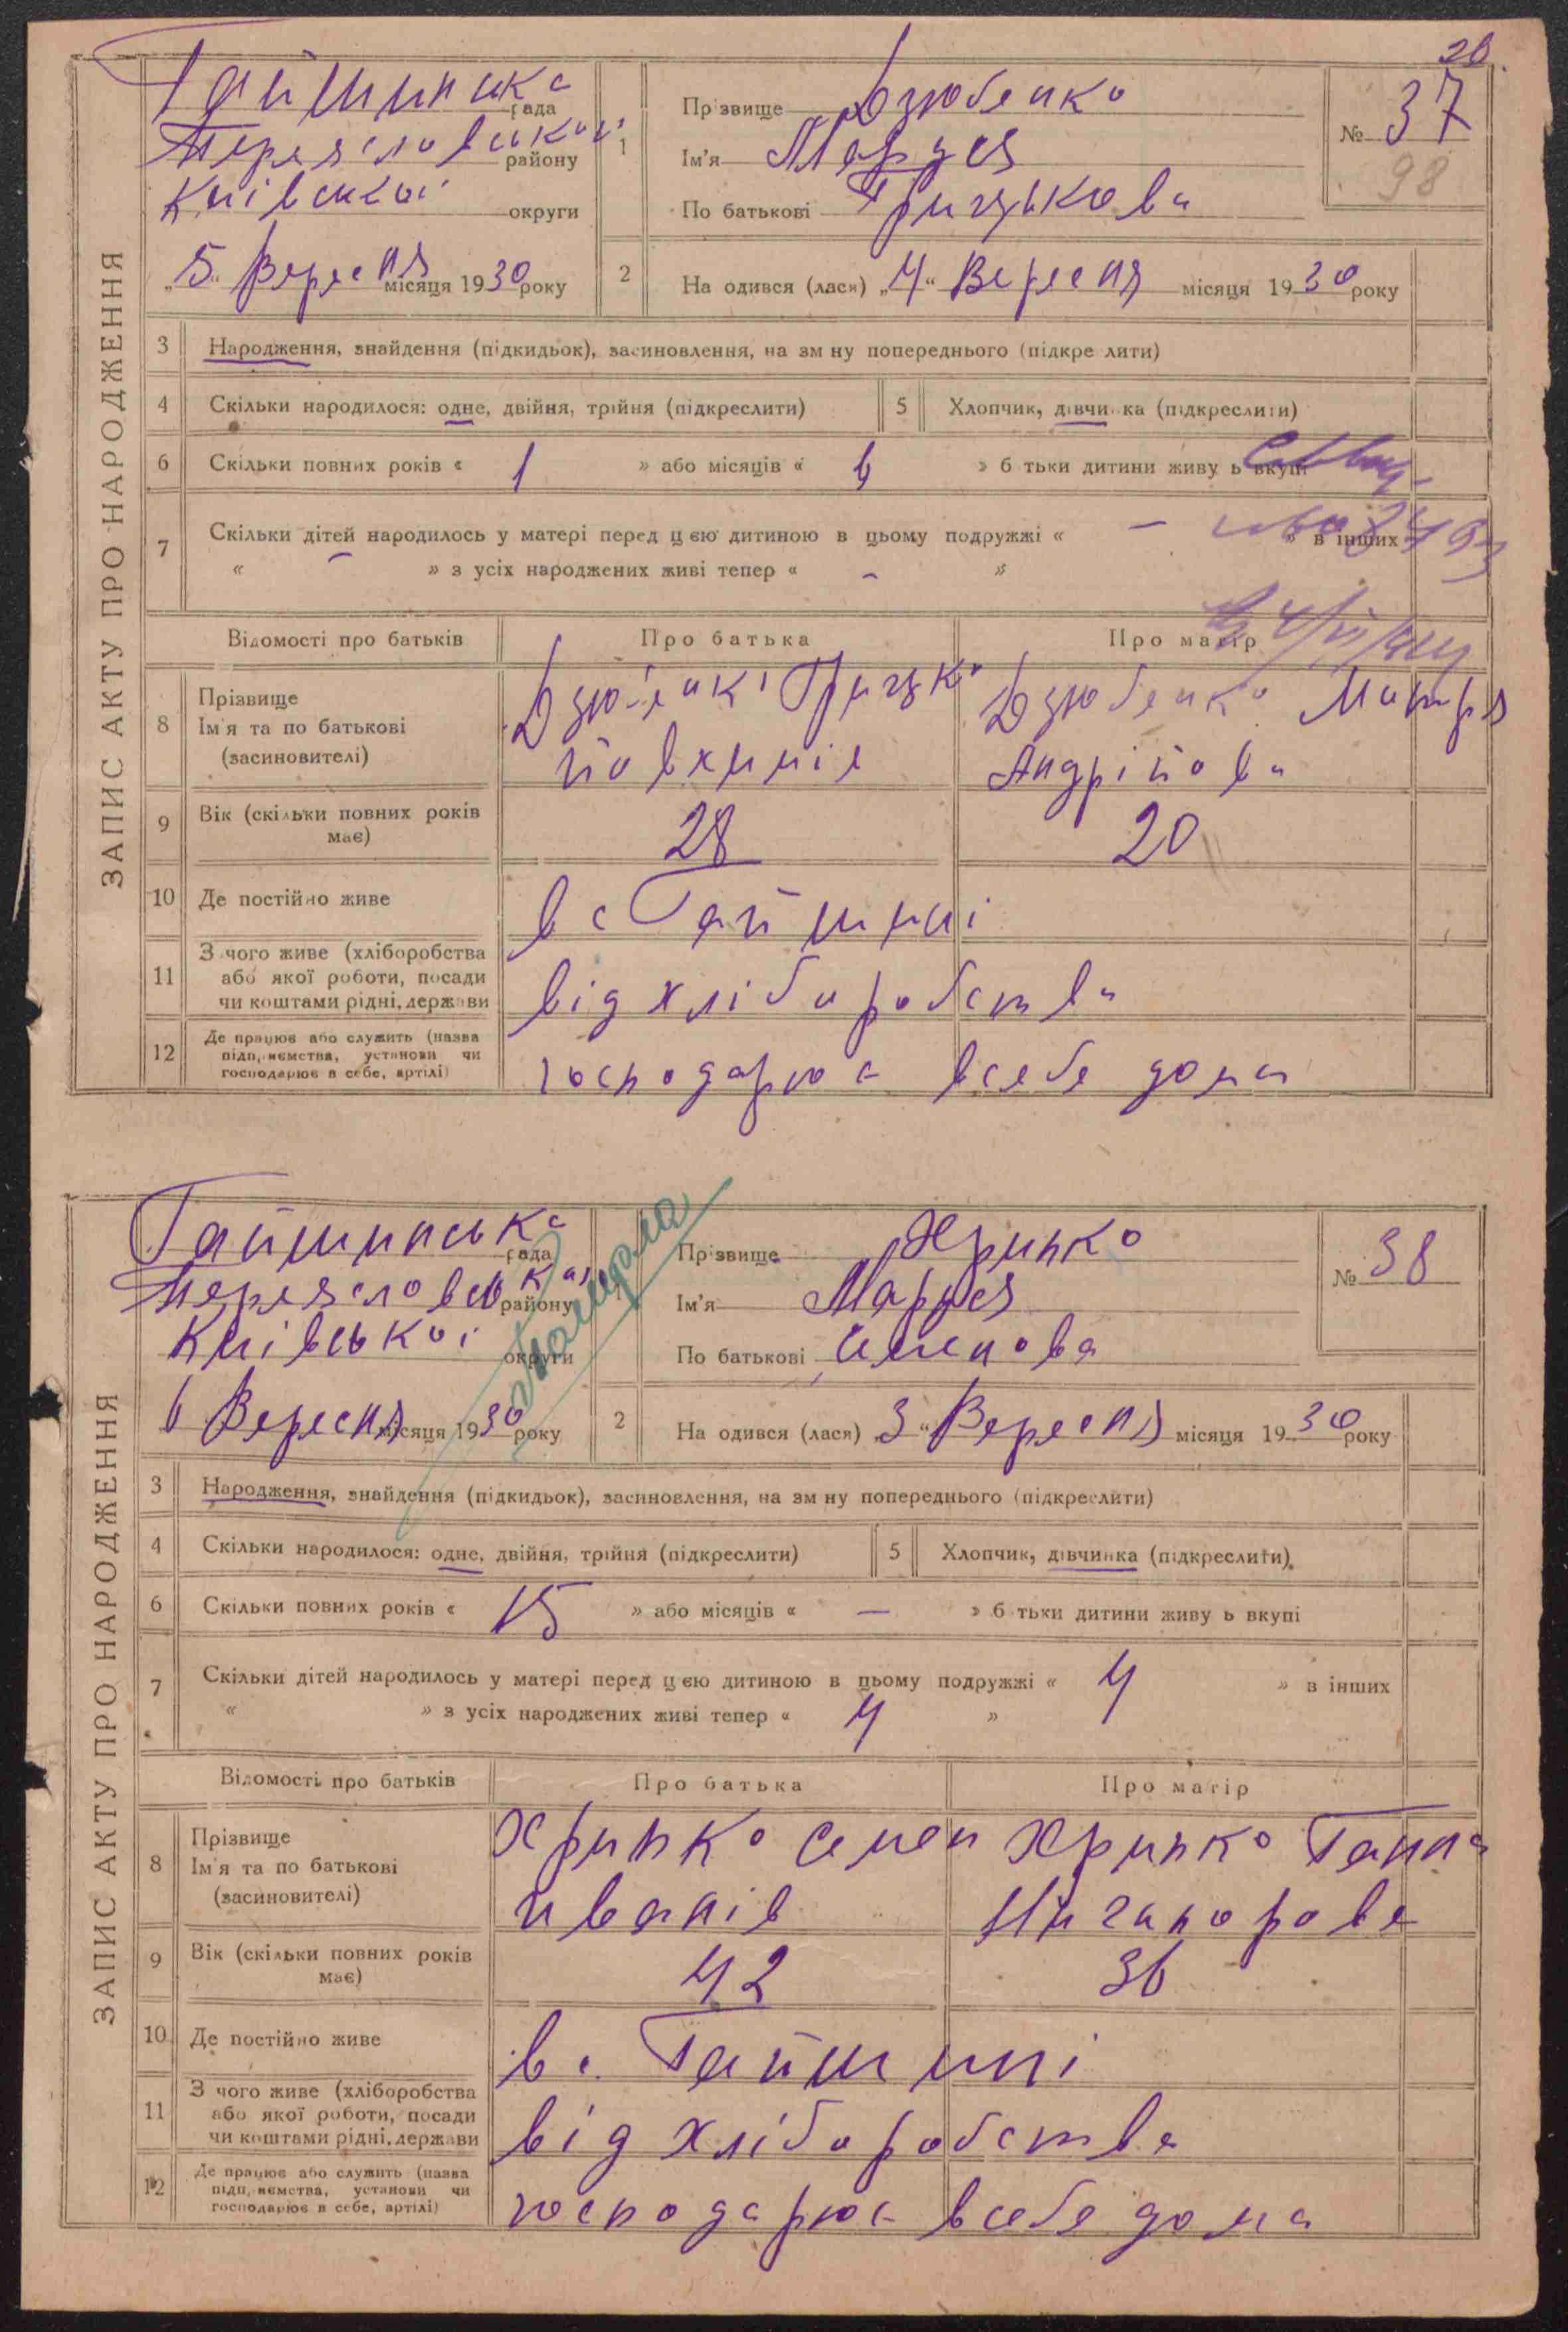 26
ЗАПИС АКТУ ПРО НАРОДЖЕННЯ
Гайшинська рада
Переяславської району
Київської округи
„5“ Вересня місяця 1930 року
1 Прізвище Дзюбенко
Ім'я Маруся
По батькові Грицькова
№ 37
98
2 На одився (лася) „4“ Вересня місяця 1930 року
3 Народження, знайдення (підкидьок), засиновлення, на зм ну попереднього (підкре лити)
4 Скільки народилося: одне, двійня, трійня (підкреслити)
5 Хлопчик, дівчинка (підкреслити)
6 Скільки повних років « 1 » або місяців « 6 » б тьки дитини живу ь вкупі
7 Скільки дітей народилось у матері перед цею дитиною в цьому подружжі « — » в інших
« — » з усіх народжених живі тепер « — »
Відомості про батьків Про батька Про матір
8 Прізвище Ім'я та по батькові (засиновителі)
Дзюбенко Грицко
Дзюбенко Мотря
Андрійова
9 Вік (скільки повних років має) 28 20
10 Де постійно живе в с Гайшині
11 З чого живе (хліборобства або якої роботи, посади чи коштами рідні, держави від хліборобства
12 Де працює або служить (назва підп, иємства, установи чи господарює в себе, артілі) господарює в себе дома
ЗАПИС АКТУ ПРО НАРОДЖЕННЯ
Гайшинська рада
Переяславської району
Київської округи
6 Вересня місяця 1930 року
Прізвище Хрипко
Ім'я Маруся
По батькові Семенова
№ 38
2 На одився (лася) „3“ Вересня місяця 1930 року
3 Народження, знайдення (підкидьок), засиновлення, на зм ну попереднього (підкреслити)
4 Скільки народилося: одне, двійня, трійня (підкреслити)
5 Хлопчик, дівчинка (підкреслити)
6 Скільки повних років « 15 » або місяців « — » б тьки дитини живу ь вкупі
7 Скільки дітей народилось у матері перед цею дитиною в цьому подружжі « 4 » в інших
« » з усіх народжених живі тепер « 4 »
Відомості про батьків Про батька Про матір
8 Прізвище Ім'я та по батькові (засиновителі)
Хрипко Семен
Иванів
Хрипко Ганна
Ничапорова
9 Вік (скільки повних років має) 42 36
10 Де постійно живе в с. Гайшині
11 З чого живе (хліборобства або якої роботи, посади чи коштами рідні, держави від хліборобства
12 Де працює або служить (назва підп, иємства, установи чи господарює в себе, артілі) господарює в себе дома